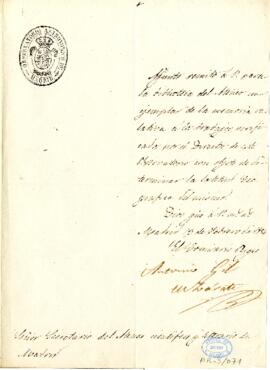 OBSERVATORIO ASTRONOMICO
MADRID
Adjunto remito á V. para
la biblioteca del Ateneo un
ejemplar de la memoria re-
lativa á los trabajos verifi-
cados por el Director de este
Observatorio con objeto de de-
terminar la latitud geo-
grafica del mismo.
Dios gûe á V. m. a.
Madrid de Febrero de
El Comisario Regio
Antonio Gil
de Zarate
Señor Secretario del Ateneo cientifico y literario de
Madrid